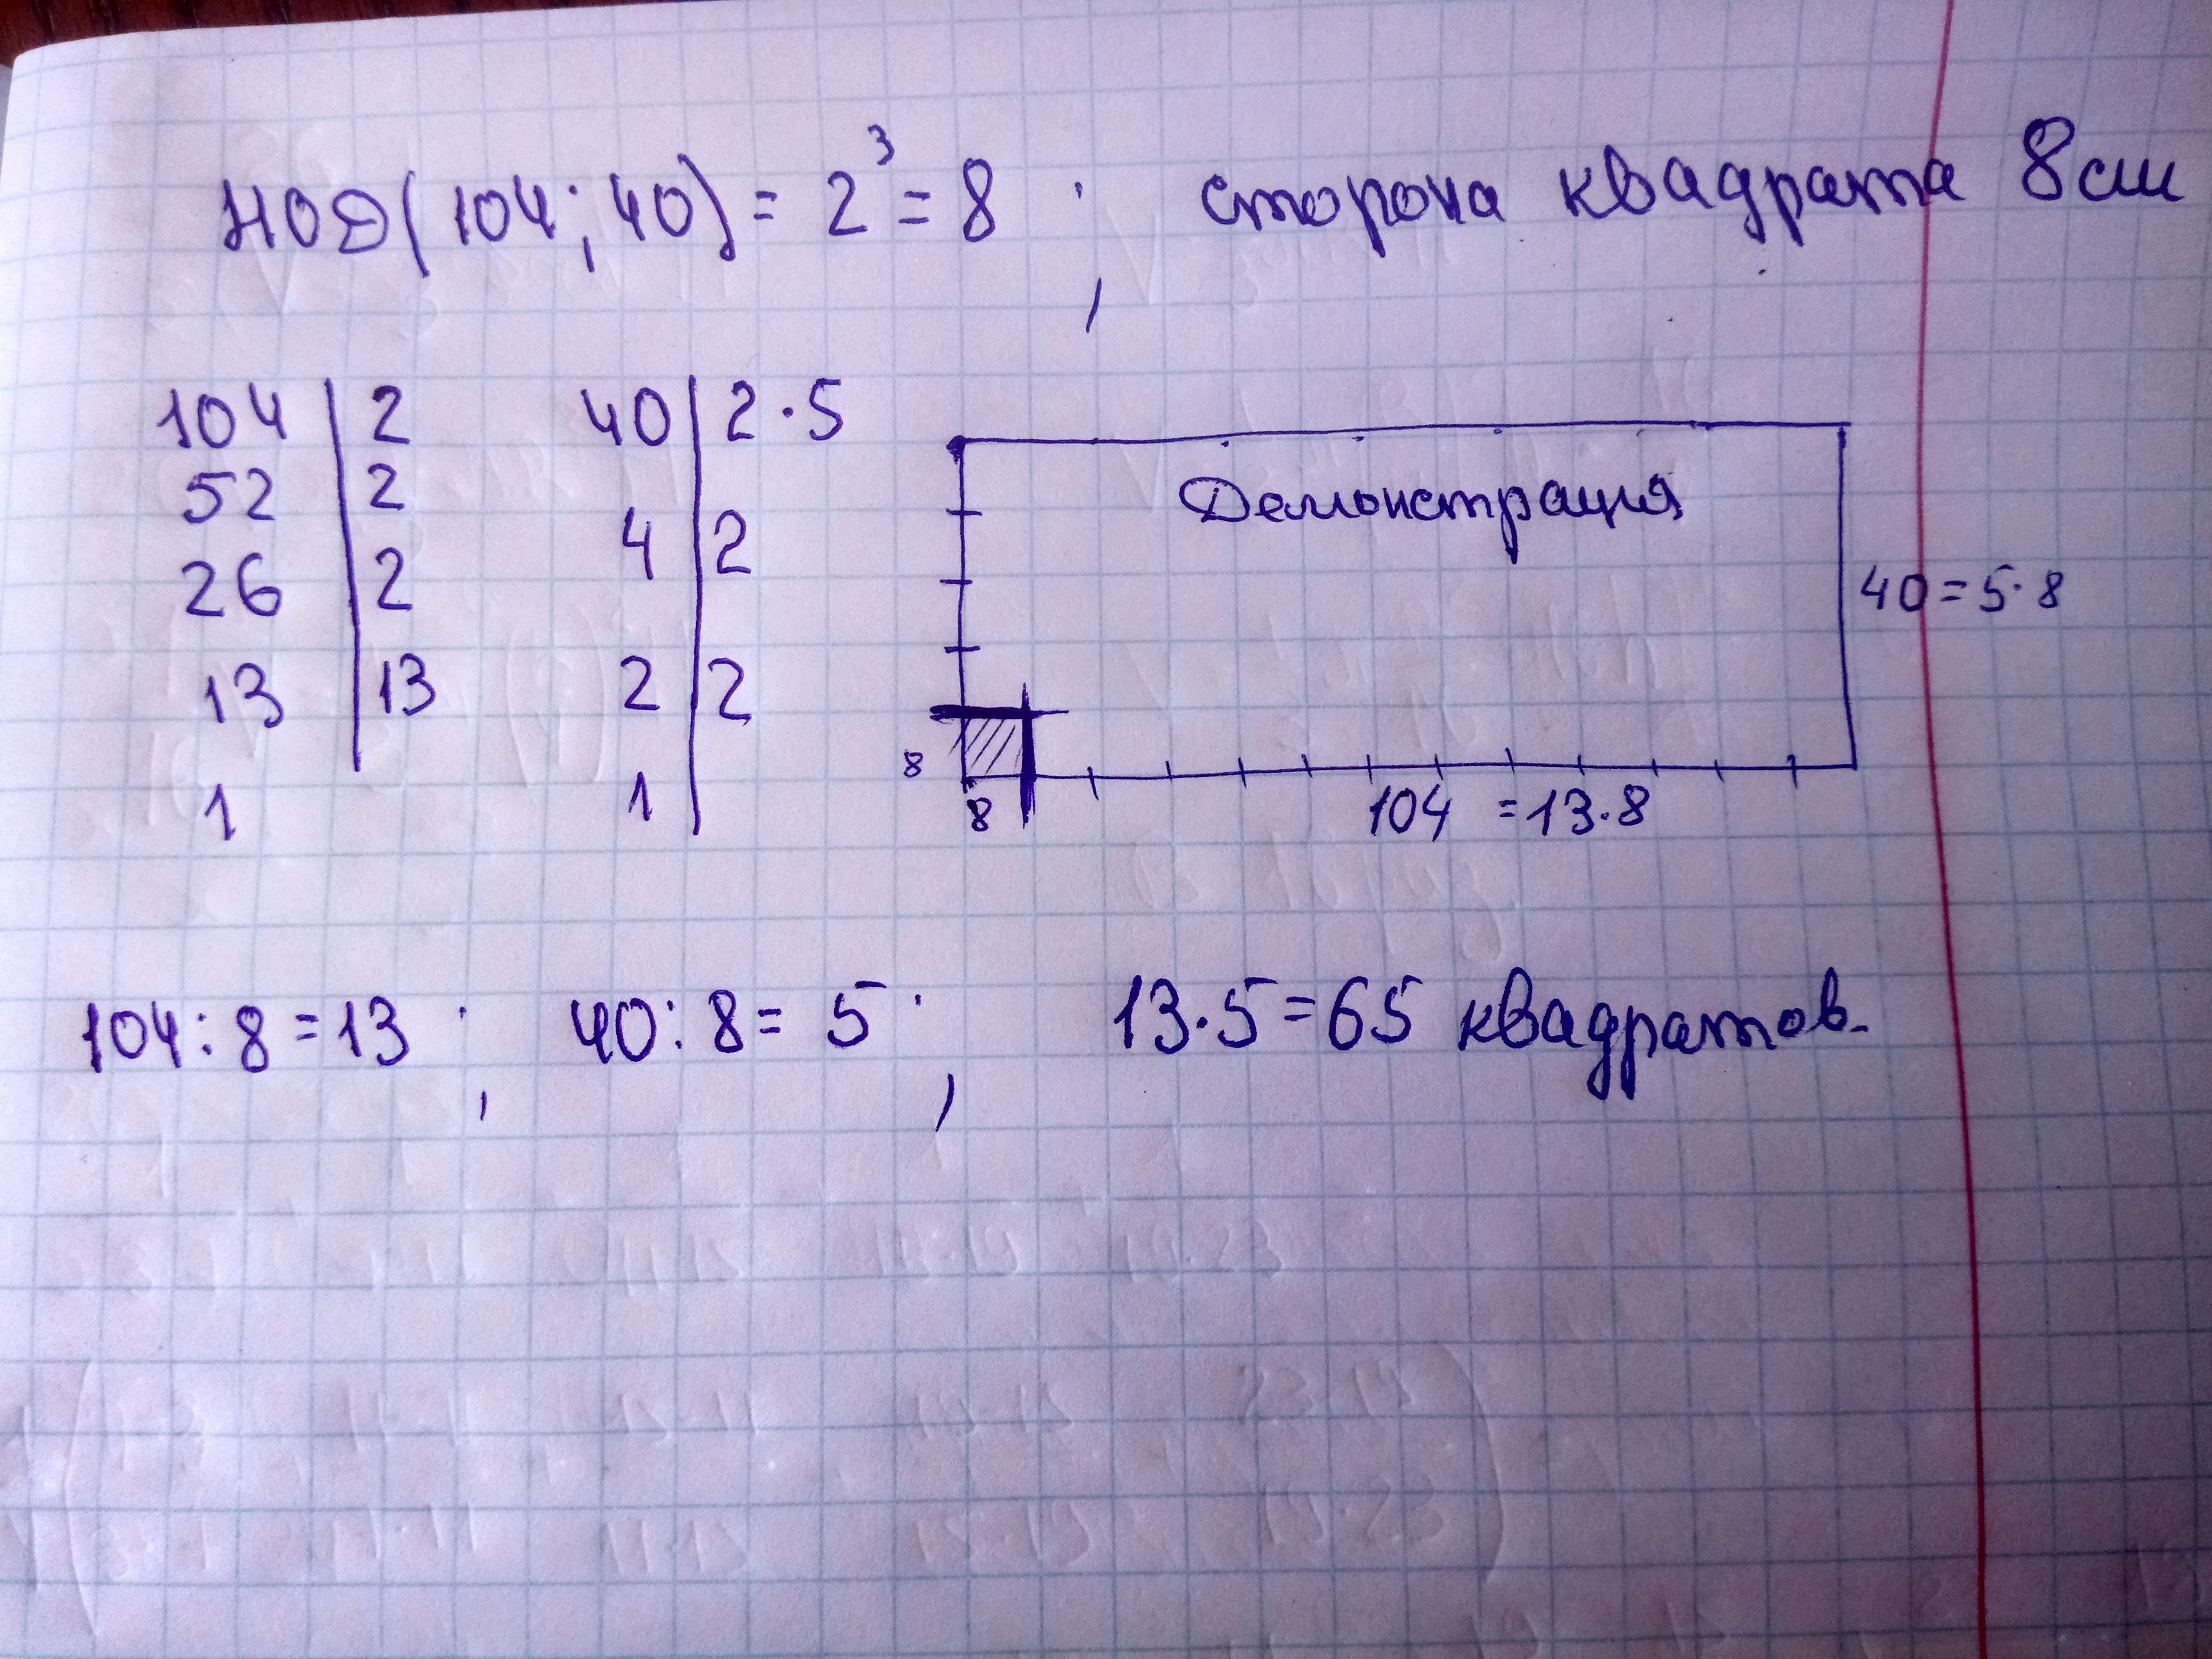 НОД(104;40)=2³=8; сторона квадрата 8см
104|2 40|2·5
52|2
4|2
26|2
13|13 2|2
1 1|
Демонстрация
40=5·8
8
8 104 =13·8
104:8=13; 40:8=5; 13·5=65 квадратов.